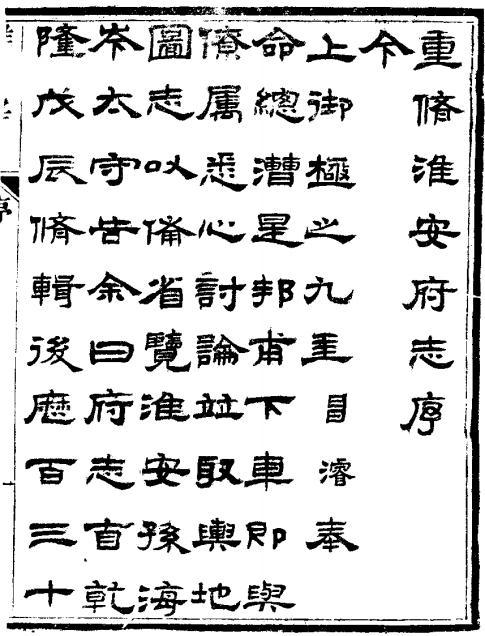 重脩淮安府志序
今
上御極之九年臣濬奉
命總漕是邦甫下車即與
僚属悉心討論竝取輿地
圖志以備省覽淮安孫海
岑太守告余曰府志自乾
隆戊辰脩輯後歷百三十
序